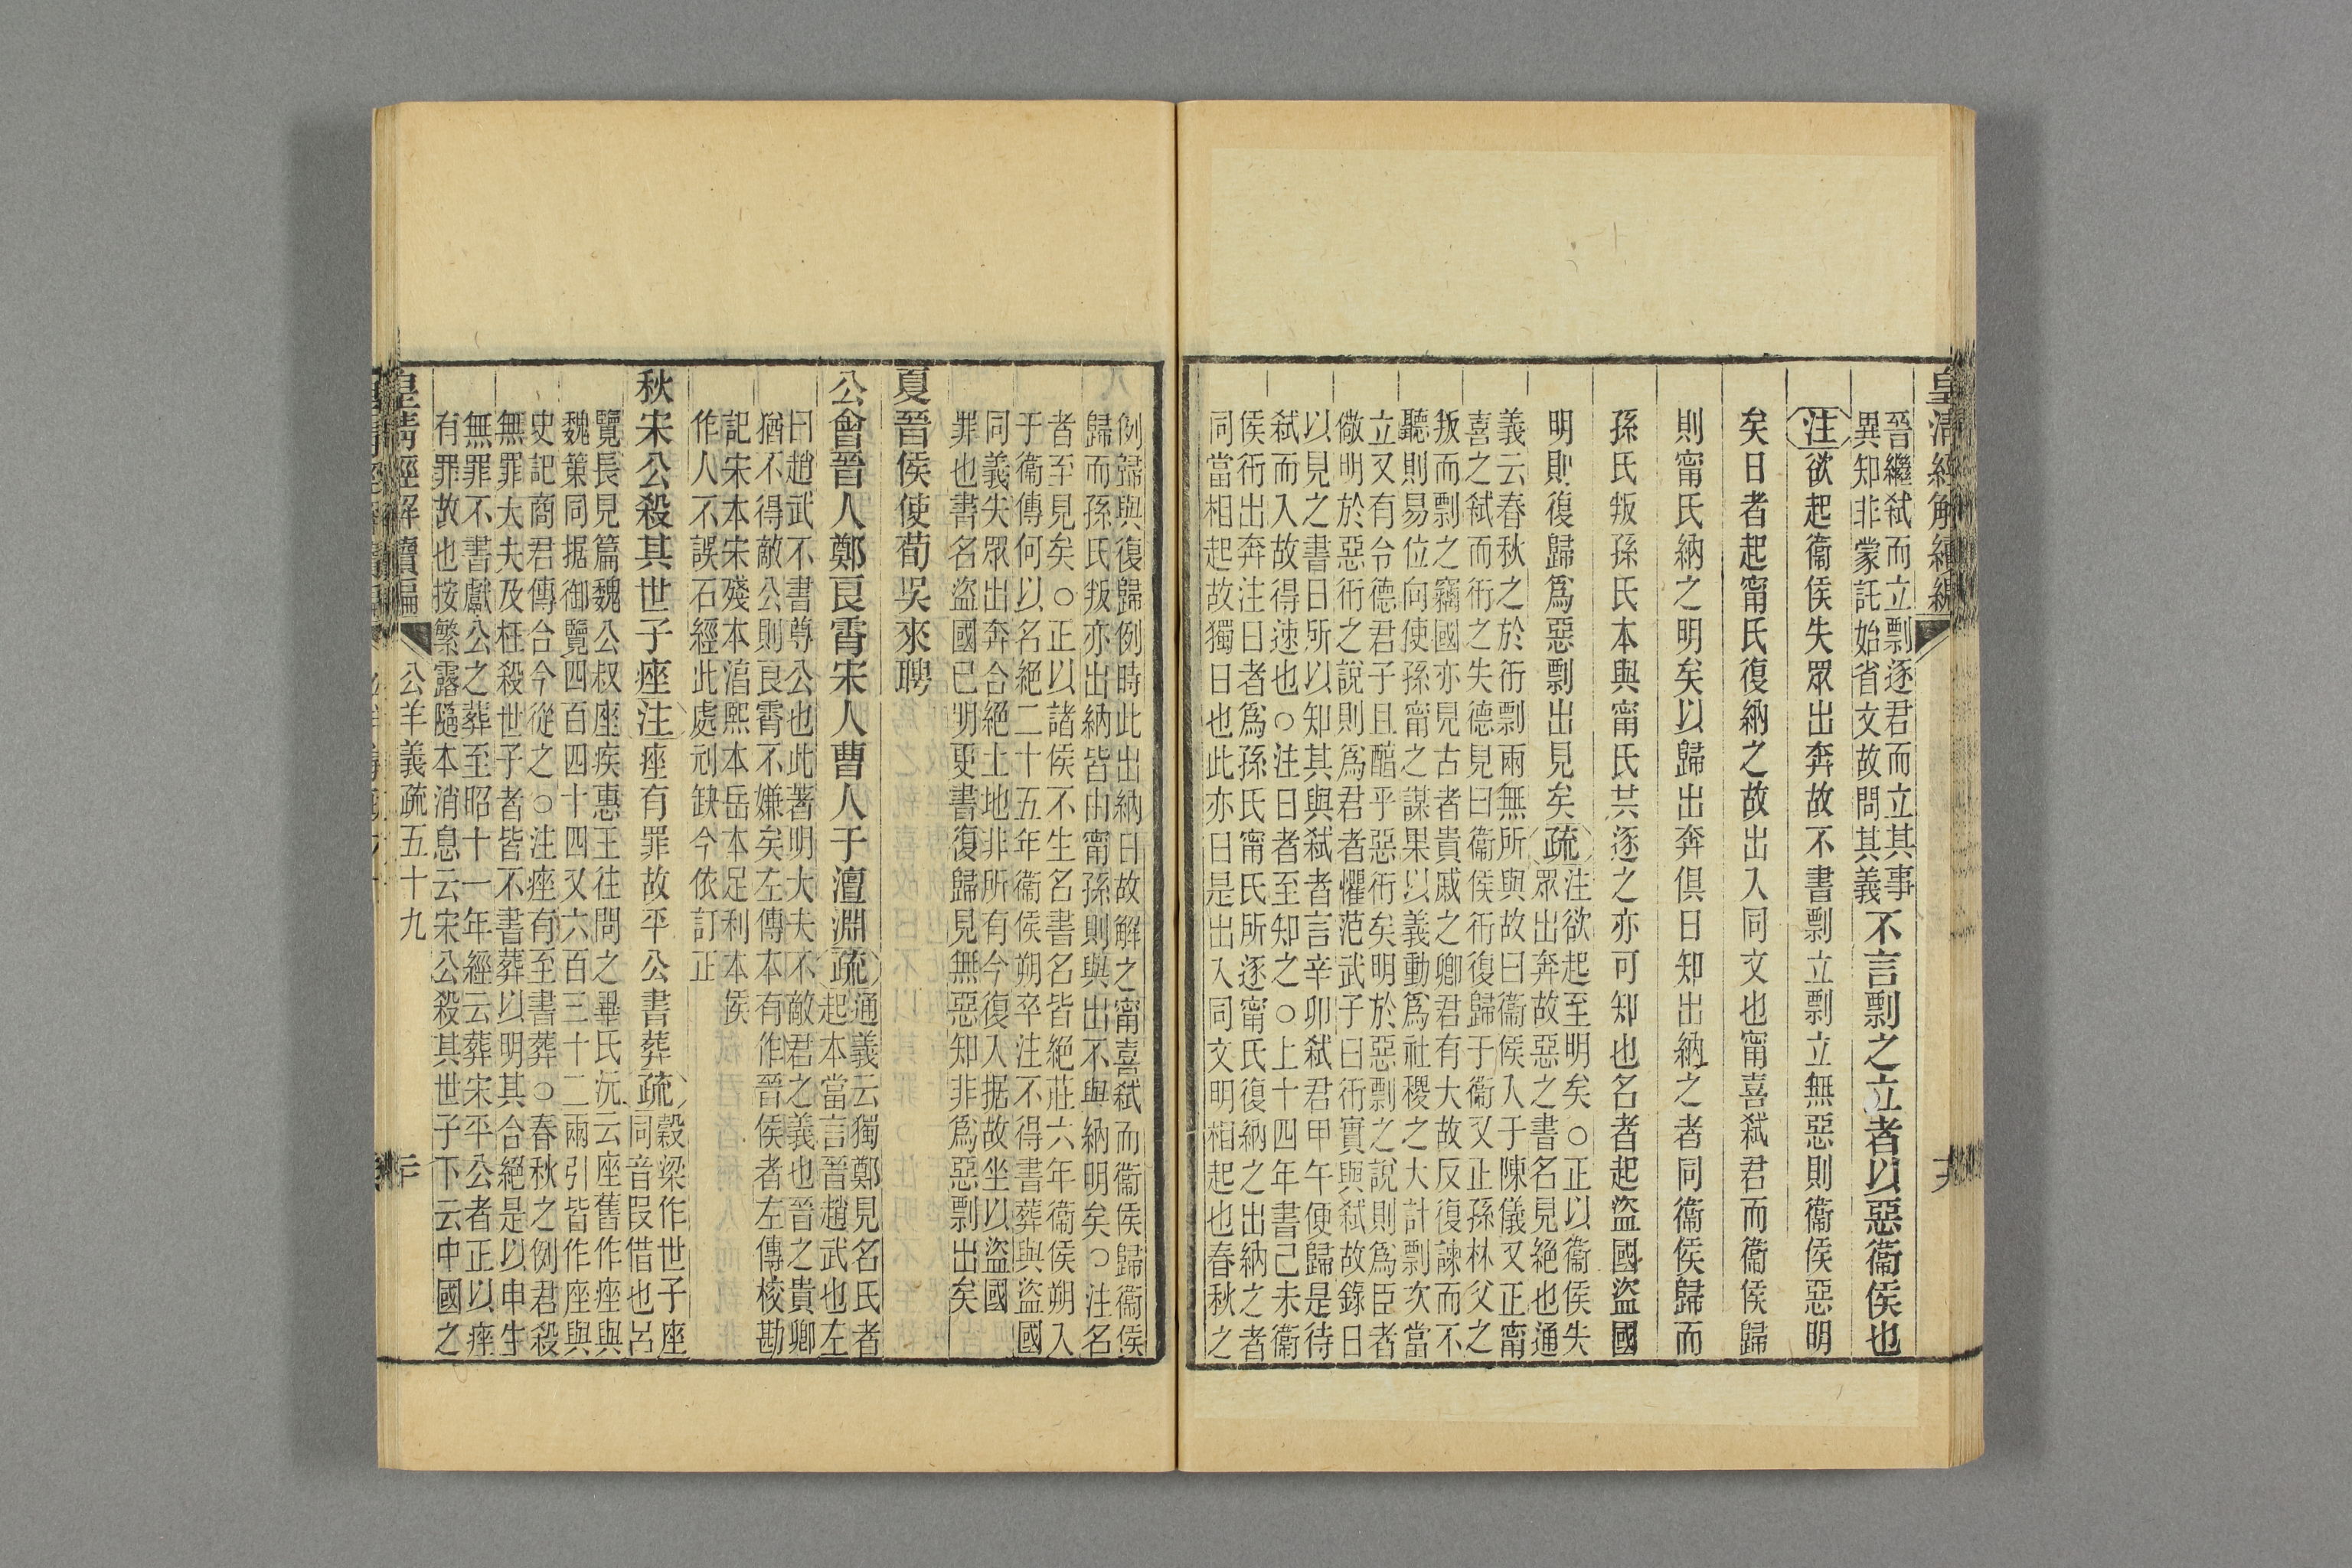 皇清經解續編
晉繼弑而立剽逐君而立其事
異知非蒙託始省文故問其義
不言剽之立者以惡衞侯也
注欲起衞侯失眾出奔故不書剽立剽立無惡則衞侯惡明
矣日者起甯氏復納之故出入同文也甯喜弑君而衞侯歸
則甯氏納之明矣以歸出奔俱日知出納之者同衞侯歸而
孫氏叛孫氏本與甯氏共逐之亦可知也名者起盜國盜國
明則復歸爲惡剽出見矣疏
注欲起至明矣○正以衞侯失
眾出奔故惡之書名見絕也通
義云春秋之於衎剽兩無所與故曰衞侯入于陳儀又正甯
喜之弑而衎之失德見曰衞侯衎復歸于衞又正孫林父之
叛而剽之竊國亦見古者貴戚之卿君有大故反復諫而不
聽則易位向使孫甯之謀果以義動爲社稷之大計剽次當
立又有令德君子且醕乎惡衎矣明於惡剽之說則爲臣者
儆明於惡衎之說則爲君者懼范武子曰衎實與弑故錄日
以見之書日所以知其與弑者言辛卯弑君甲午便歸是待
弑而入故得速也○注日者至知之○上十四年書己未衞
侯衎出奔注日者爲孫氏甯氏所逐甯氏復納之出納之者
同當相起故獨日也此亦日是出入同文明相起也春秋之
例歸與復歸例時此出納日故解之甯喜弑而衞侯歸衞侯
歸而孫氏叛亦出納皆由甯孫則與出不與納明矣○注名
者至見矣○正以諸侯不生名書名皆絕莊六年衞侯朔入
于衞傳何以名絕二十五年衞侯朔卒注不得書葬與盜國
同義失眾出奔合絕土地非所有今復入据故坐以盜國
罪也書名盜國已明更書復歸見無惡知非爲惡剽出矣
夏晉侯使荀吳來聘
公會晉人鄭良霄宋人曹人于澶淵疏
通義云獨鄭見名氏者
起本當言晉趙武也左
曰趙武不書尊公也此著明大夫不敵君之義也晉之貴卿
猶不得敵公則良霄不嫌矣左傳本有作晉侯者左傳校勘
記宋本宋殘本淳熙本岳本足利本侯
作人不誤石經此處刓缺今依訂正
秋宋公殺其世子痤注痤有罪故平公書葬疏
穀梁作世子座
同音叚借也呂
覽長見篇魏公叔座疾惠王往問之畢氏沅云座舊作痤與
魏策同据御覽四百四十四又六百三十二兩引皆作座與
史記商君傳合今從之○注痤有至書葬○春秋之例君殺
無罪大夫及枉殺世子者皆不書葬以明其合絕是以申生
無罪不書獻公之葬至昭十一年經云葬宋平公者正以痤
有罪故也按繁露隨本消息云宋公殺其世子下云中國之
皇清經解續編
公羊義疏五十九